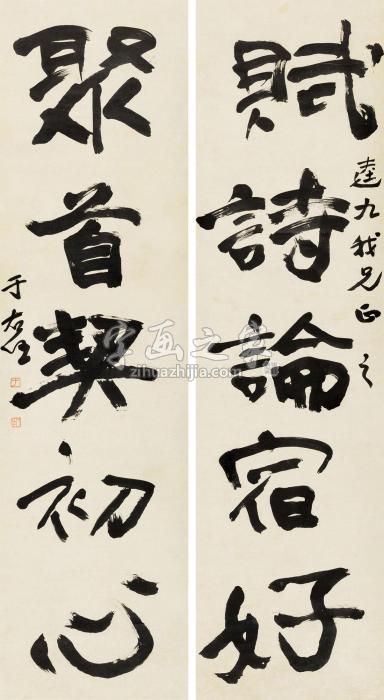 賦詩論宿好
逵九我兄正之
聚首契初心
于右任
字画之家
zihuazhijia.com